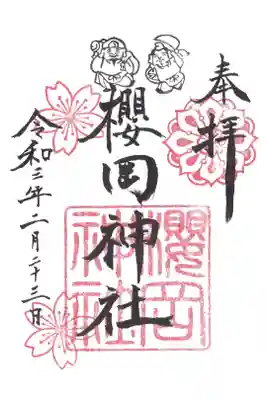 奉拝
櫻岡神社
令和三年二月二十三日
櫻岡
神社